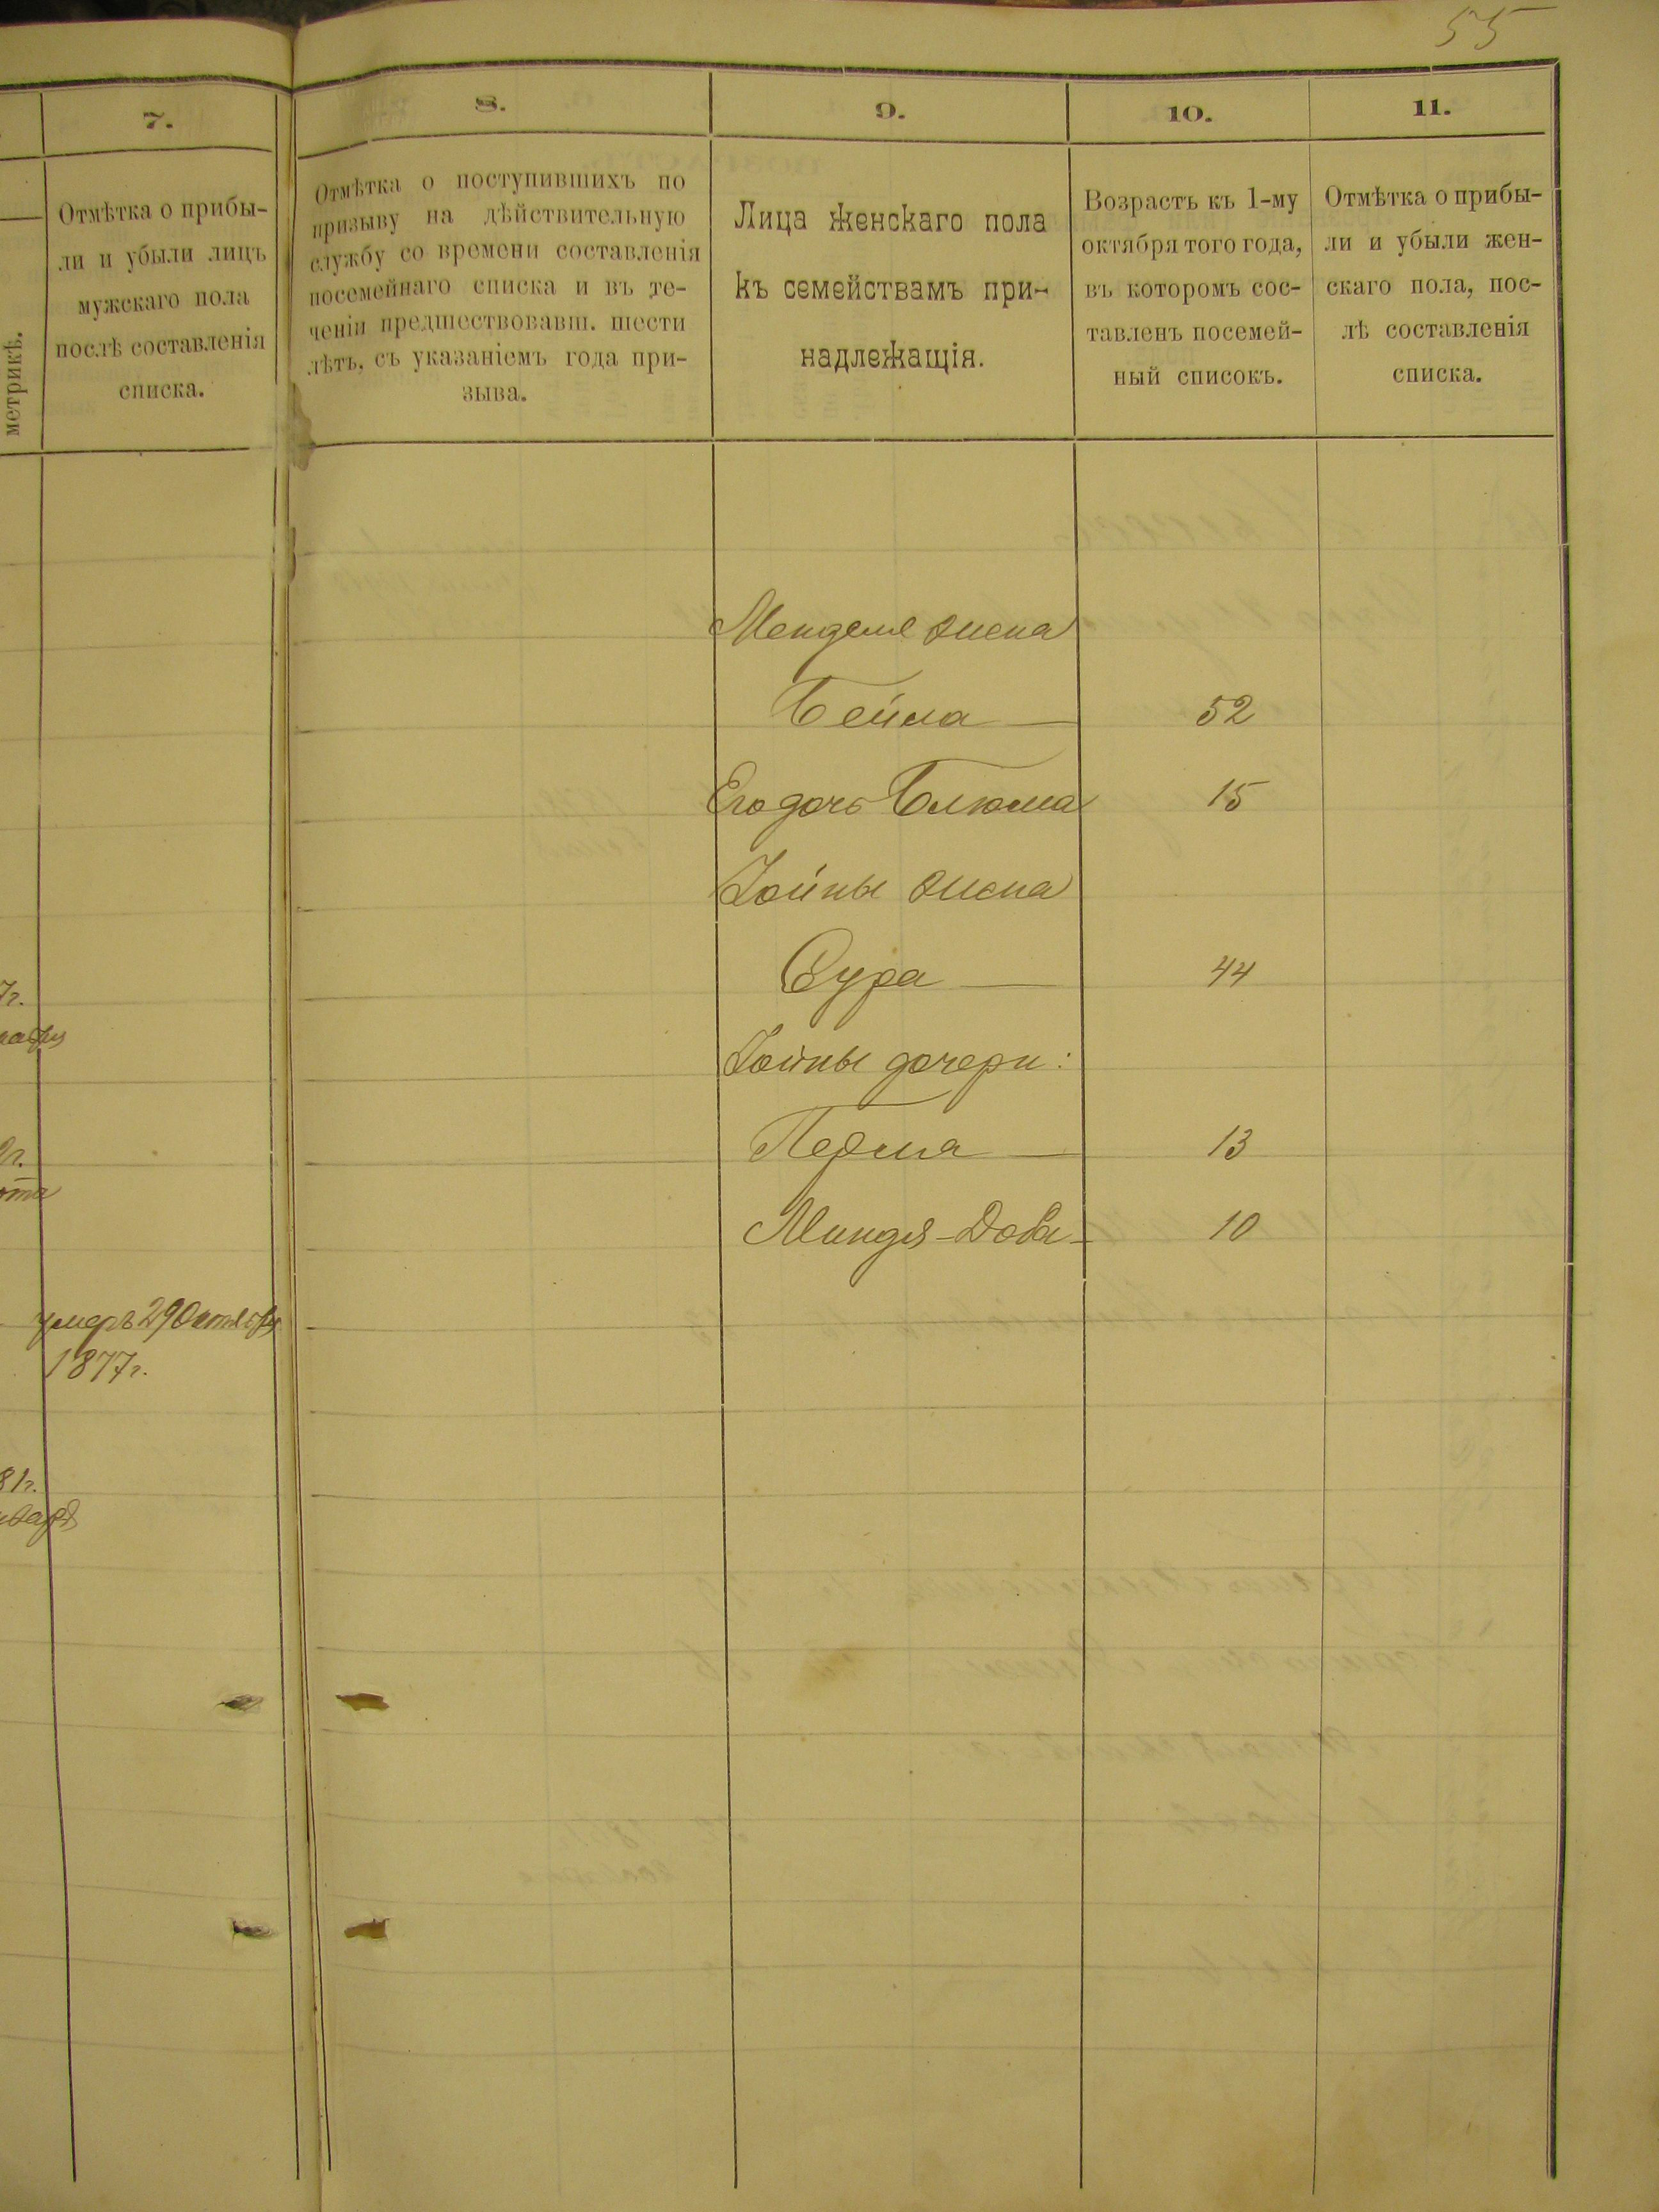 55
7.
Отмѣтка о прибы-
ли и убыли лицъ
мужскаго пола
послѣ составленія
списка.
метрикѣ.
7г.
умеръ 29 Октября
1877г.
81г.
8.
Отмѣтка о поступившихъ по
призыву на дѣйствительную
службу со времени составленія
посемейнаго списка и въ те-
ченіи предшествовавш. шести
лѣтъ, съ указаніемъ года при-
зыва.
9.
Лица женскаго пола
къ семействамъ при-
надлежащія.
10.
Возрастъ къ 1-му
октября того года,
въ которомъ сос-
тавленъ посемей-
ный списокъ.
11.
Отмѣтка о прибы-
ли и убыли жен-
скаго пола, пос-
лѣ составленія
списка.
Менделя жена
Бейла — 52
Его дочь Блюма 15
Іойны жена
Сура — 44
Іойны дочери:
Песля — 13
Миндля-Доба - 10